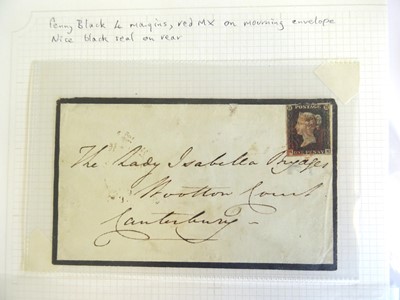 Penny Black 4 margins, red MX on mourning envelope
Nice black seal on rear
POSTAGE
ONE PENNY
The Lady Isabella Brydges
Wootton Court
Canterbury